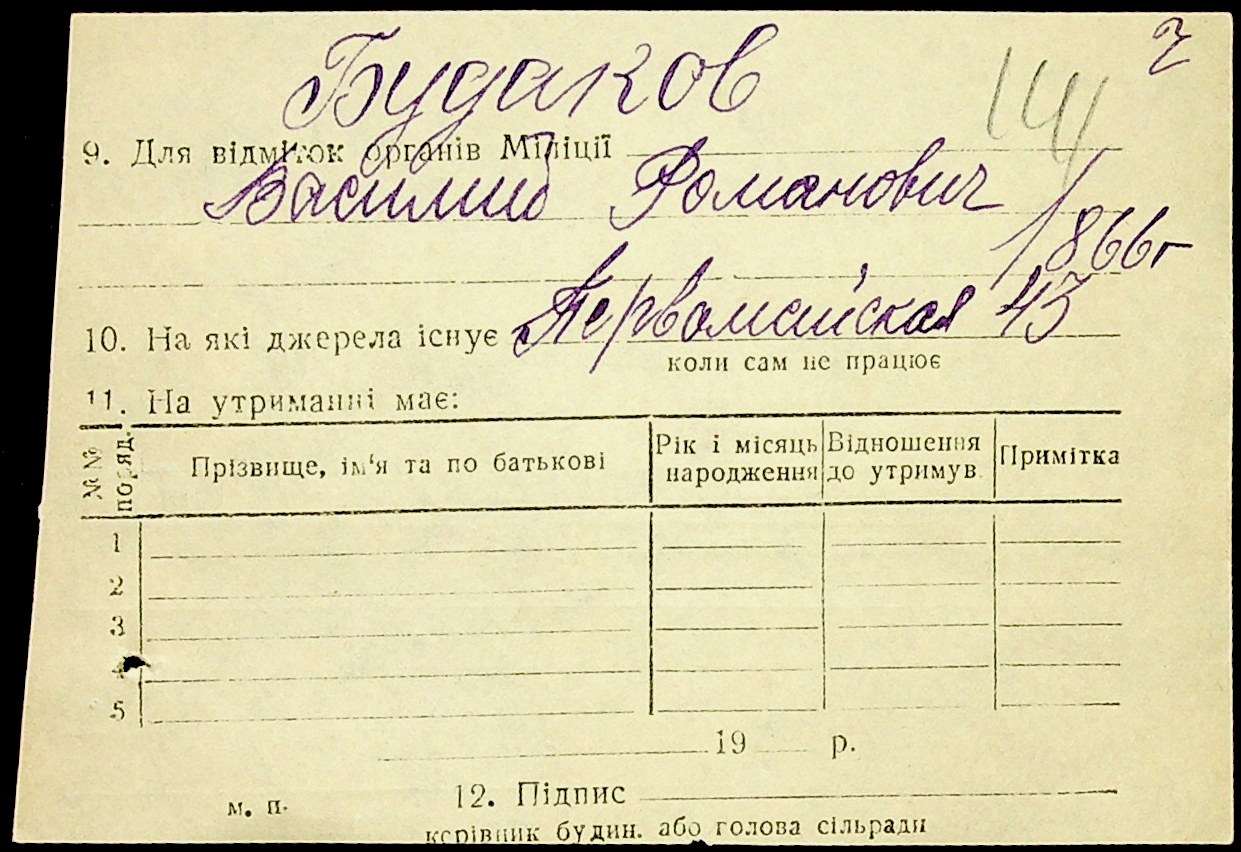 Будаков
144
9. Для відміток органів Міліції
Василий Романович
1866г
10. На які джерела існує Первомайская 43
коли сам не працює
11. На утриманні має:
№№ поряд. Прізвище, ім'я та по батькові Рік і місяць народження Відношення до утримув. Примітка
1
2
3
4
5
19 р.
м. п. 12. Підпис
керівник будин. або голова сільради